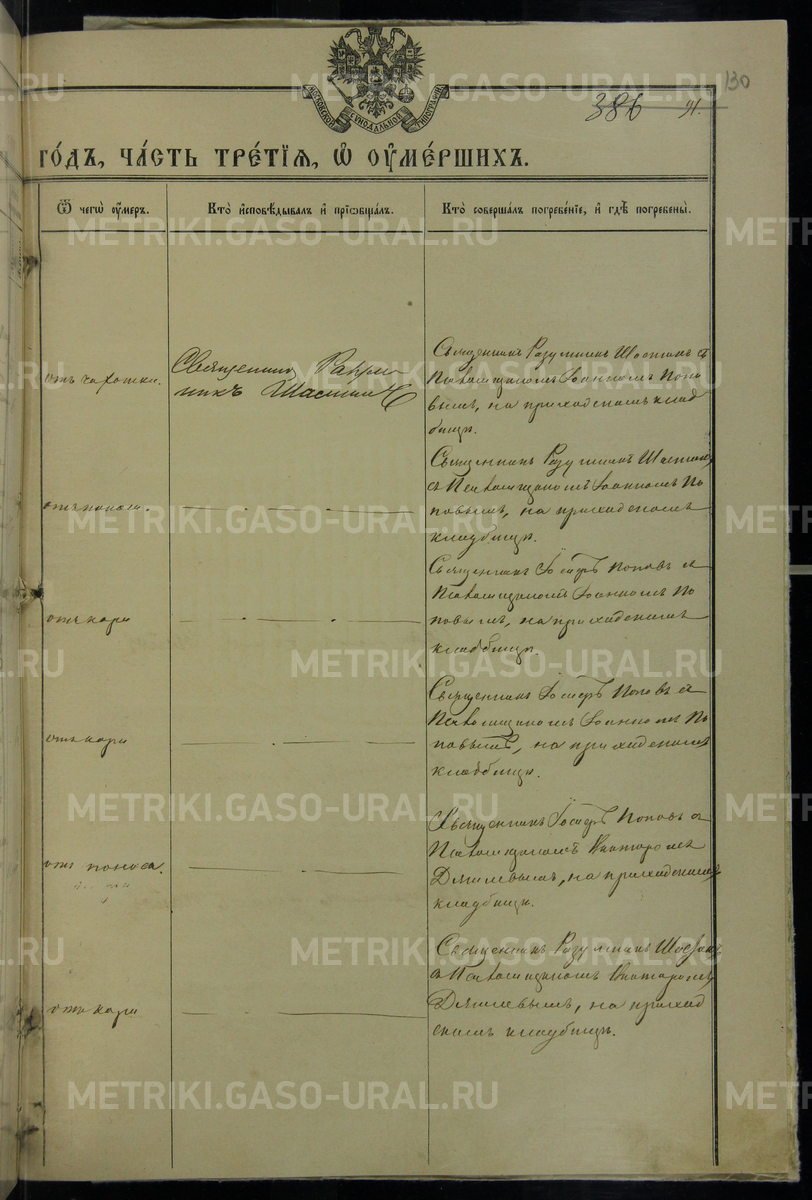 130
386 91.
МОСКОВСКОЙ СѴНОДАЛЬНОЙ ТИПОГРАФІИ
го́дъ, ча́сть тре́тїѧ, ѡ҆ ᲂу҆ме́ршихъ.
Ѿ чегѡ̀ ᲂу҆́меръ.
Кто̀ и҆сповѣ́дывалъ и҆ прїѡбща́лъ.
Кто̀ соверша́лъ погребе́нїе, и҆ гдѣ̀ погребены̀.
отъ чахотки.
Священникъ
Шастинъ
Священникъ Разумникъ Шастинъ съ
Псаломщикомъ Іоанномъ Попо
вымъ, на приходскомъ клад
бищѣ.
отъ поноса.
Священникъ Разумникъ Шастинъ
съ Псаломщикомъ Іоанномъ По
повымъ, на приходскомъ
кладбищѣ.
отъ кори
Священникъ Іосифъ Поповъ съ
Псаломщикомъ Іоанномъ По
повымъ, на приходскомъ
кладбищѣ.
отъ кори
Священникъ Іосифъ Поповъ съ
Псаломщикомъ Іоанномъ По
повымъ, на приходскомъ
кладбищѣ.
отъ поноса.
Священникъ Іосифъ Поповъ съ
Псаломщикомъ Викторомъ
на приходскомъ
кладбищѣ.
отъ кори
Священникъ Разумникъ Шастинъ
съ Псаломщикомъ Викторомъ
на приход
скомъ кладбищѣ.
METRIKI.GASO-URAL.RU